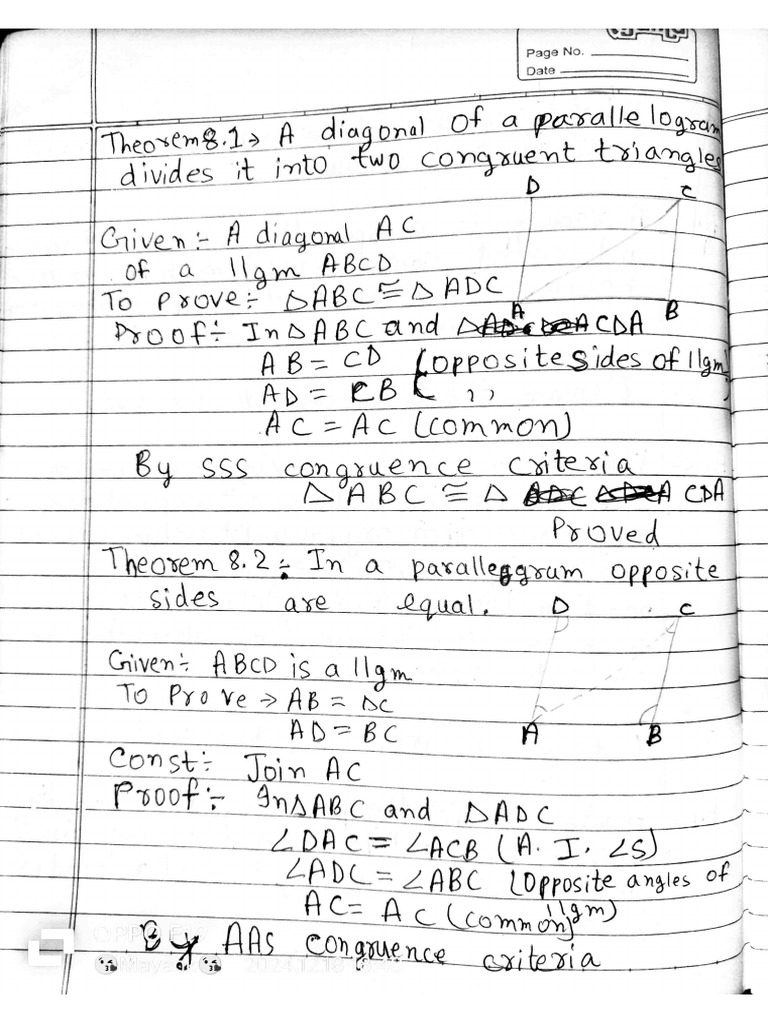 Page No.
Date
Theorem 8.1 → A diagonal of a parallelogram
divides it into two congruent triangles
D C
Given:- A diagonal AC
of a llgm ABCD
To Prove:- △ABC ≅ △ ADC
A B
Proof:- In △ ABC and △ ACDA
AB = CD (opposite sides of llgm)
AD = CB ( ,, )
AC = AC (common)
By SSS congruence criteria
△ ABC ≅ △ CDA
Proved
Theorem 8.2:- In a parallegrum opposite
sides are equal.
D C
Given:- ABCD is a llgm
To Prove → AB = DC
AD = BC
A B
Const:- Join AC
Proof:- In △ABC and △ADC
∠DAC = ∠ACB (A. I. ∠S)
∠ADC = ∠ABC (opposite angles of
llgm)
AC = AC (common)
By AAS congruence criteria